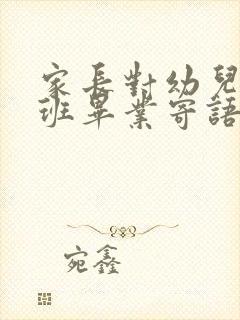 家長對幼兒
班畢業寄語
宛鑫